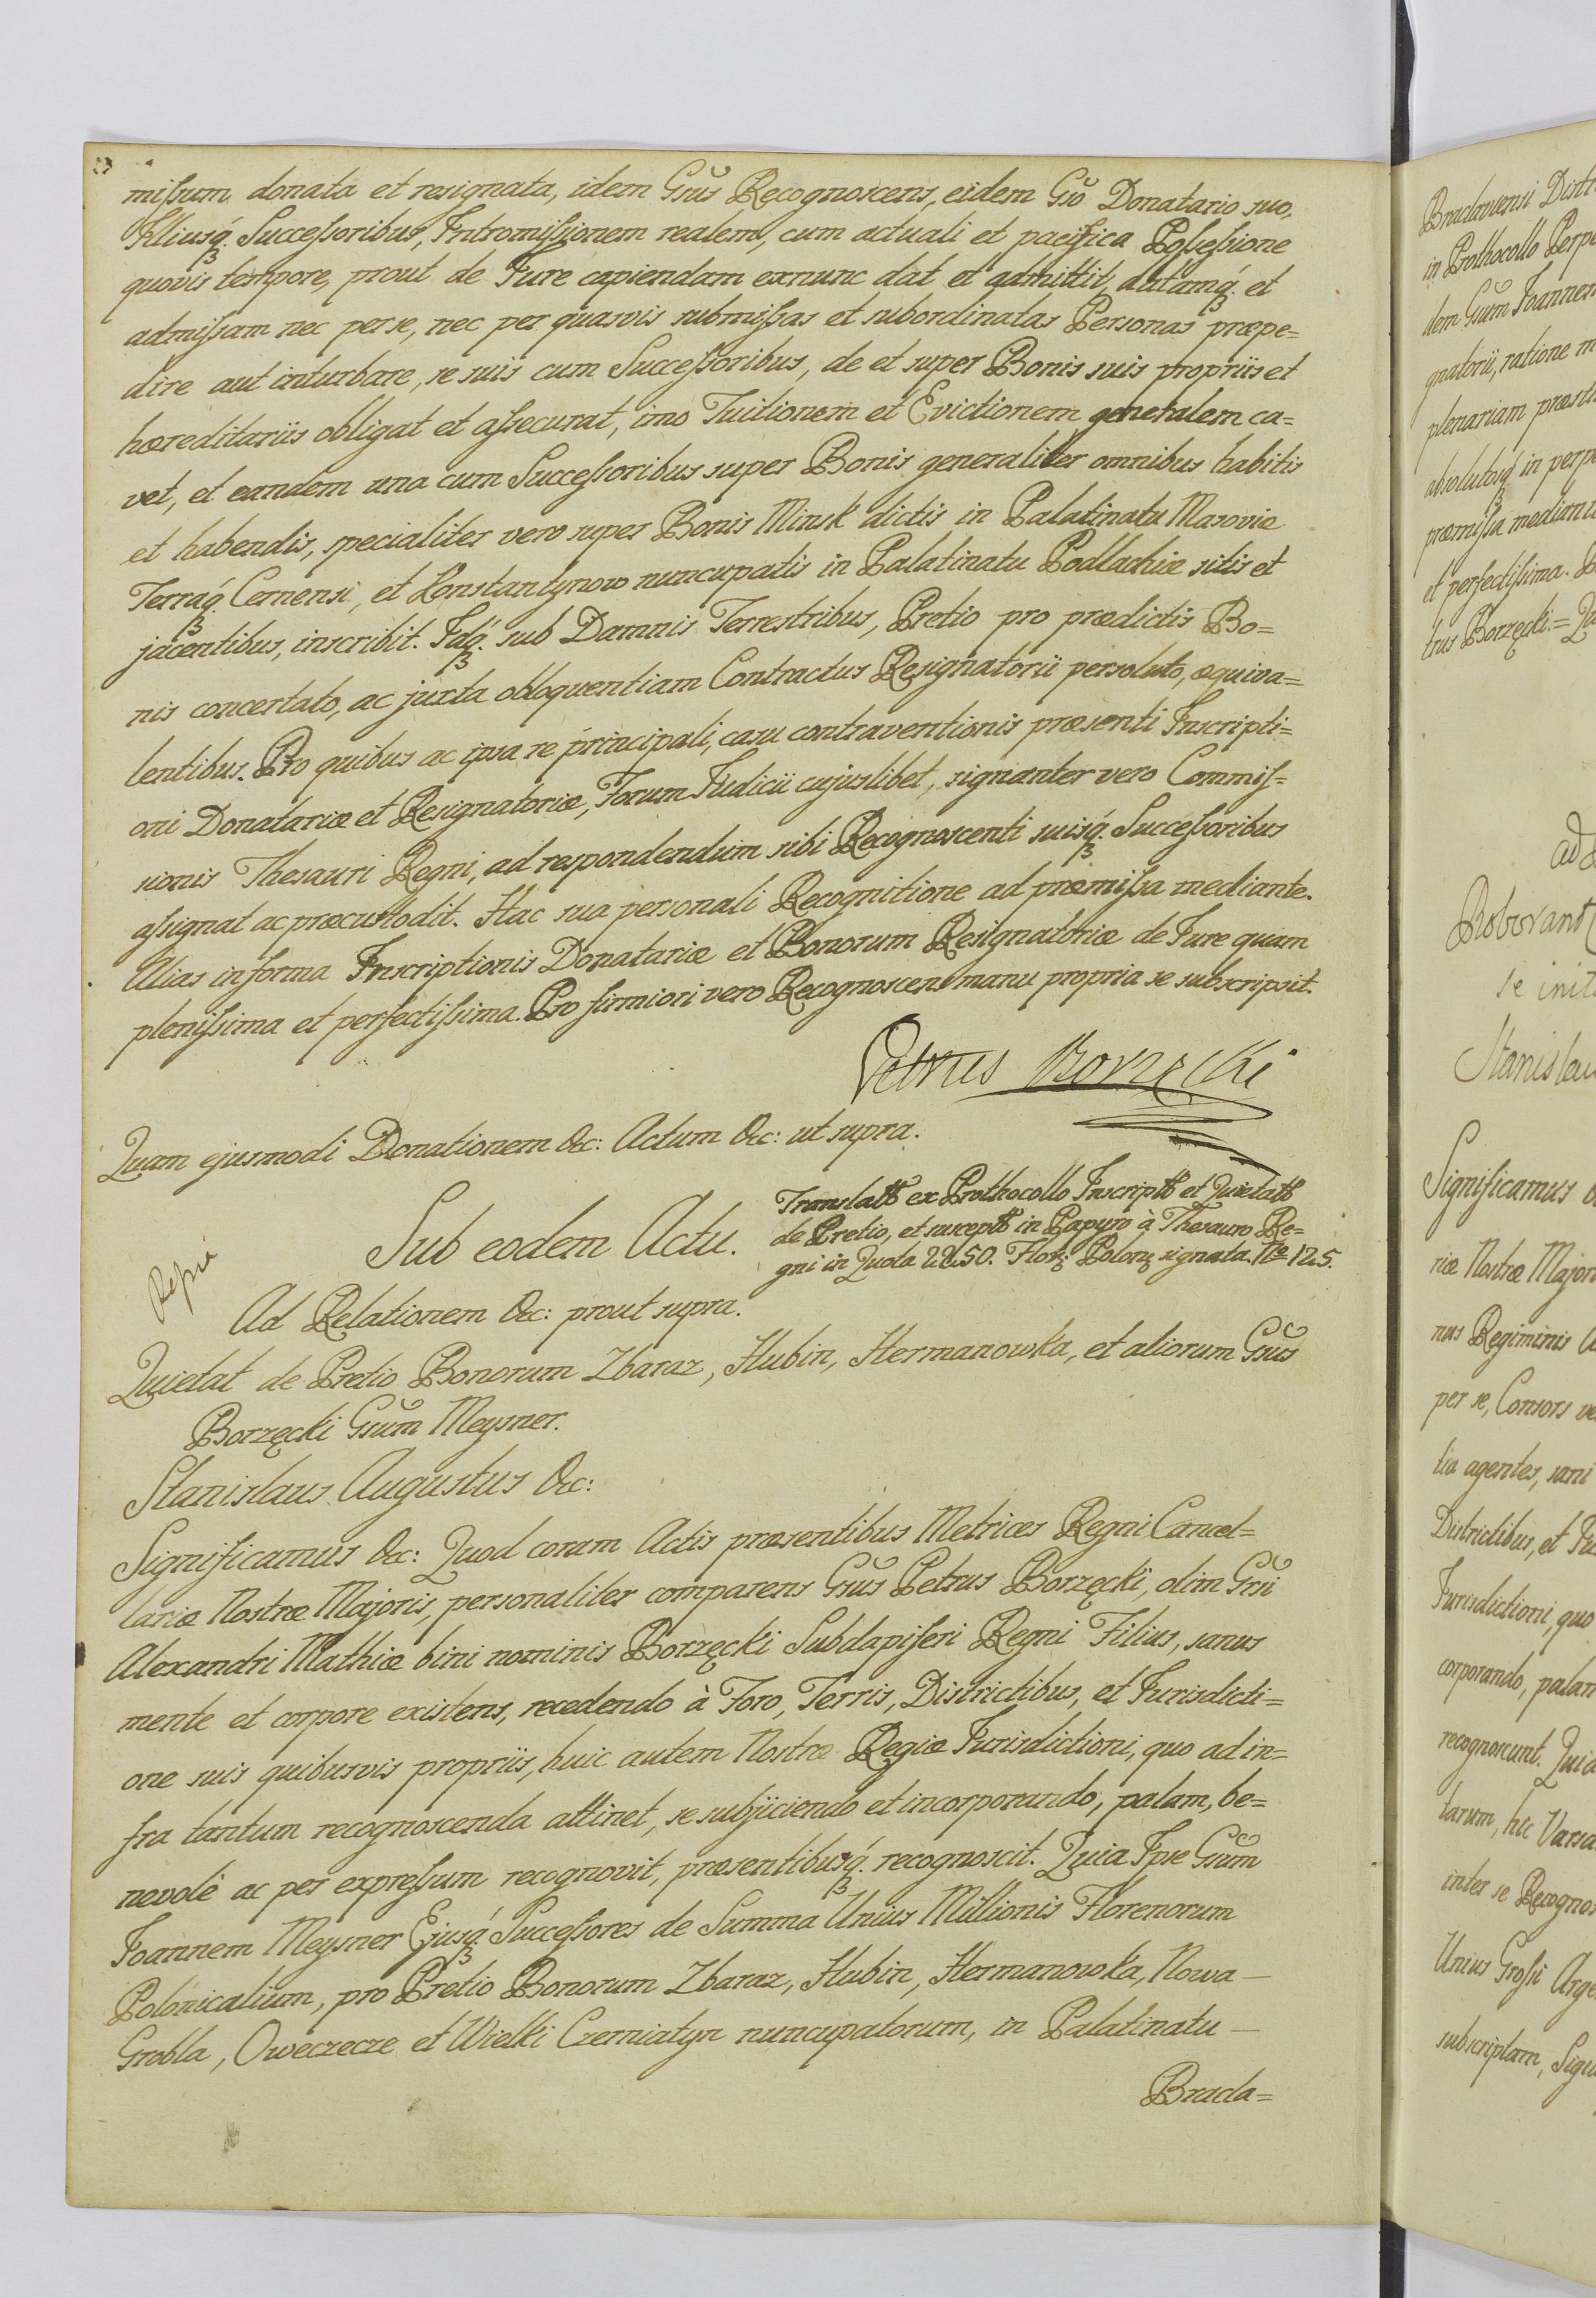 mißum donata et resignata, idem Gsus Recognoscens, eidem Gso Donatario suo,
Illiusq́. Successoribus, Intromißionem realem, cum actuali et pacifica Poßeßione
quovis tempore, prout de Jure capiendam exnunc dat et admittit, datamq́. et
admißam nec per se, nec per quasvis submißas et subordinatas Personas præpe=
dire aut inturbare, se suis cum Succeßoribus, de et super Bonis suis propriis et
hæreditariis obligat et aßecurat, imo Tuitionem et Evictionem generalem ca=
vet, et eandem una cum Succeßoribus super Bonis generaliter omnibus habitis
et habendis, specialiter vero super Bonis Minsk dictis in Palatinatu Masoviæ
Terráq́. Cernensi, et Konstantynow nuncupatis in Palatinatu Podlachiæ sitis et
jacentibus, inscribit. Idq́. sub Damnis Terrestribus, Pretio pro prædictis Bo=
nis concertato, ac juxta obloquentiam Contractus Resignatorii persoluto, æquiva=
lentibus. Pro quibus ac ipsa re principali, casu contraventionis præsenti Inscripti=
oni Donatariæ et Resignatoriæ, Forum Judicii cujuslibet, signanter vero Commiß=
sionis Thesauri Regni, ad respondendum sibi Recognoscenti suisq́. Succeßoribus
aßignat ac præcustodit. Hac sua personali Recognitione ad præmißa mediante.
Alias in forma Inscriptionis Donatariæ et Bonorum Resignatoriæ de Jure quam
plenißima et perfectißima. Pro firmiori vero Recognoscens manu propria se subscripsit.
Petrus Borzęcki
Quam ejusmodi Donationem &c: Actum &c: ut supra.
Sub eodem Actu.
Translat̄ ex Prothocollo Inscript̄ et Quietat̄
de Pretio, et suscept̄ in Papyro à Thesauro Re=
gni in Quota 2250. Flor: Polon: signata. No 125.
Ad Relationem &c: prout supra.
Quietat de Pretio Bonorum Zbaraz, Hubin, Hermanowka, et aliorum Gsus
Borzęcki Gsum Meysner.
Stanislaus Augustus &c:
Significamus &c: Quod coram Actis præsentibus Metrices Regni Cancel=
lariæ Nostræ Majoris, personaliter comparens Gsus Petrus Borzęcki, olim Gsi
Alexandri Mathiæ bini nominis Borzęcki Subdapiferi Regni Filius, sanus
mente et corpore existens, recedendo à Foro, Terris, Districtibus, et Jurisdicti=
one suis quibusvis propriis, huic autem Nostræ Regiæ Jurisdictioni, quo ad in=
fra tantum recognoscenda attinet, se subjiciendo et incorporando, palam, be=
nevolè ac per expreßum recognovit, præsentibusq́. recognoscit. Quia Ipse Gsum
Joannem Meysner Ejusq́. Succeßores de Summa Unius Millionis Florenorum
Polonicalium, pro Pretio Bonorum Zbaraz, Hubin, Hermanowka, Nowa —
Grobla, Oweczecze et Wielki Czerniatyn nuncupatorum, in Palatinatu —
Brada=
in Prothocollo
dem Gsum Joannem
gnatorii, ratione
plenariam
absolutosq́. in
præmißa
et perfectißima.
trus Borzęcki =
ad
se
Significamus
riæ Nostræ
nus Regiminis
per se, Consors
tia agentes, sani
Districtibus, et
Jurisdictioni, quo
corporando,
recognoscunt.
tarum, hic
inter se
Unius Großi
subscriptam,